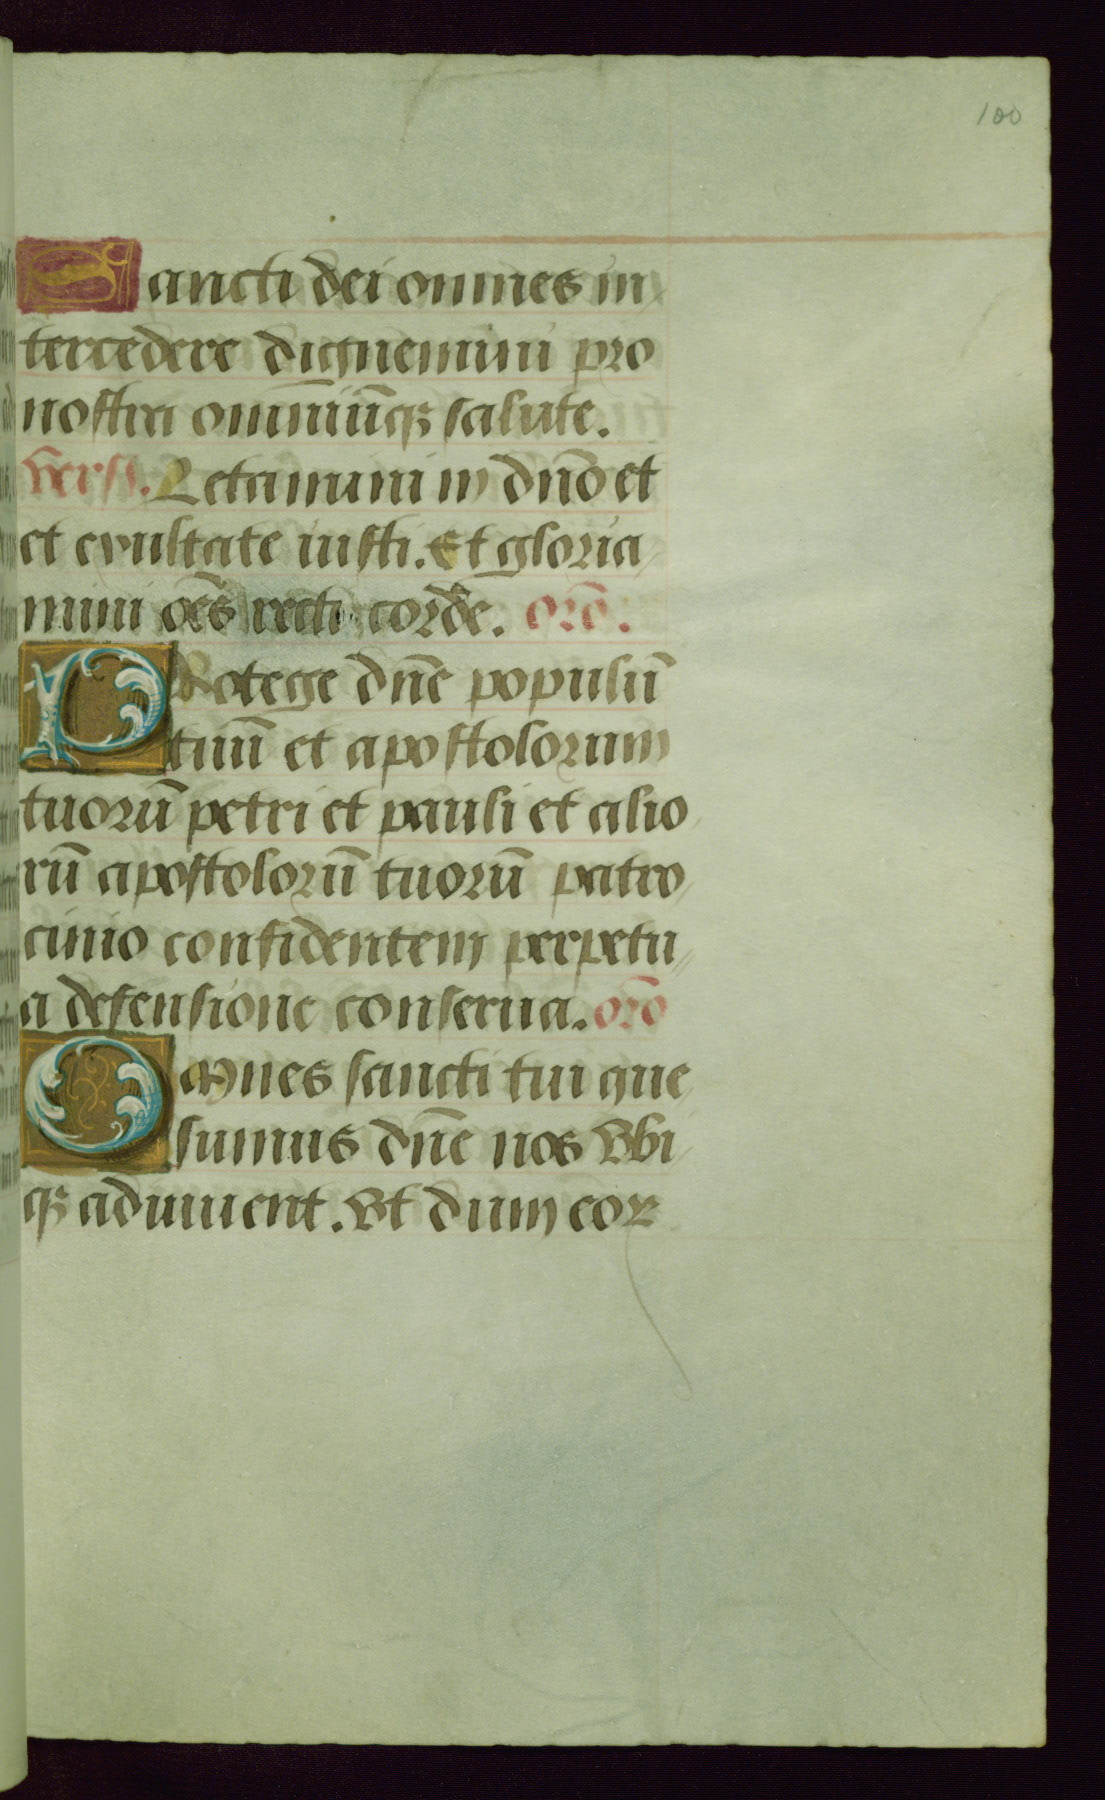 100
Sancti dei omnes in
tercedere dignemini pro
nostra omniūqꝫ salute.
vers. Letamini in dn̄o et
et exultate iusti. Et gloria
mini oēs recti corde. orō.
PRotege dn̄e populū
tuū et apostolorum
tuorū petri et pauli et alio
rū apostolorū tuorū patro
cinio confidentem perpetu
a defensione conserua. orō
OMnes sancti tui que
sumus dn̄e nos vbi
qꝫ adiuuent. vt dum eor